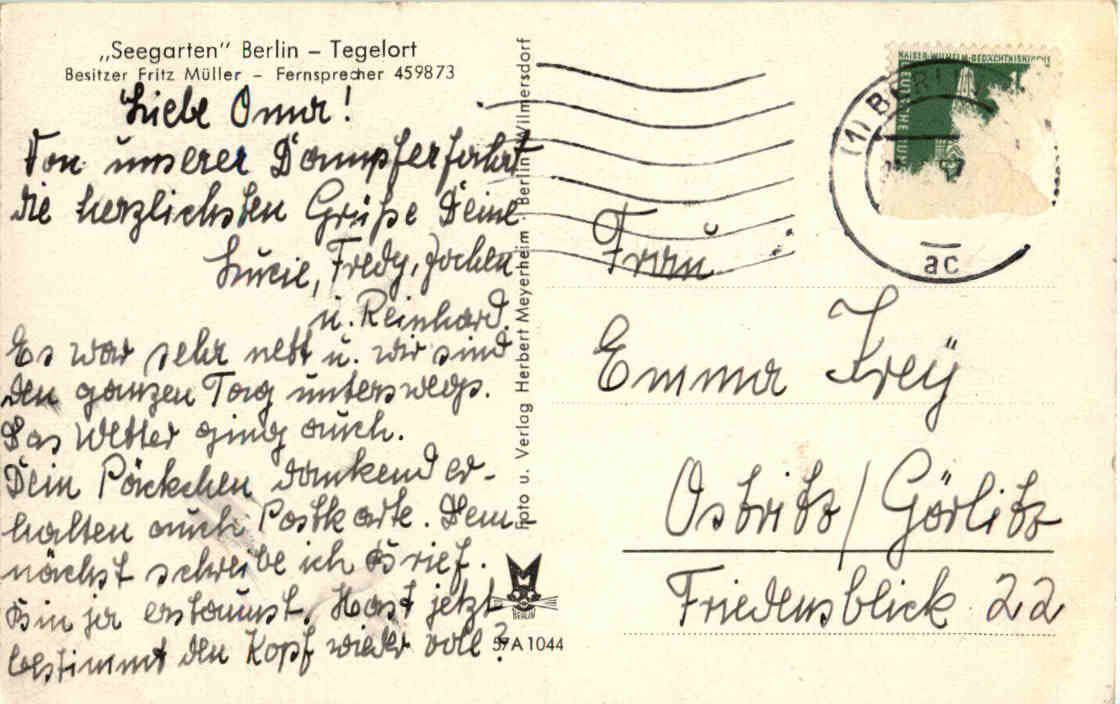 „Seegarten” Berlin – Tegelort
Besitzer Fritz Müller – Fernsprecher 459873
Liebe Oma!
Von unserer Dampferfahrt
die herzlichsten Grüße Deine
Lucie, Fredy, Jochen
u. Reinhard.
Es war sehr nett u. wir sind
den ganzen Tag unterwegs.
Das Wetter ging auch.
Dein Päckchen dankend er-
halten auch Postkarte. Dem-
nächst schreibe ich Brief.
Bin ja erstaunt. Hast jetzt
bestimmt den Kopf wieder voll?
Foto u. Verlag Herbert Meyerheim · Berlin-Wilmersdorf
BERLIN
57A1044
KAISER-WILHELM-GEDÄCHTNISKIRCHE
DEUTSCHE
(1) BERL
ac
Frau
Emma Frey
Ostritz/Görlitz
Friedensblick 22